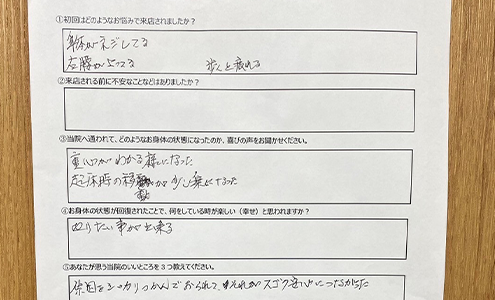 ①初回はどのようなお悩みで来店されましたか？
身体がネジレてる
左膝が 歩くと疲れる
②来店される前に不安なことなどはありましたか？
③当院へ通われて、どのようなお身体の状態になったのか、喜びの声をお聞かせください。
重心がわかる様になった
起床時の が少し楽になった
④お身体の状態が回復されたことで、何をしている時が楽しい（幸せ）と思われますか？
やりたい事が出来る
⑤あなたが思う当院のいいところを３つ教えてください。
原因をシッカリつかんでおられて、それがスゴク安心につながった